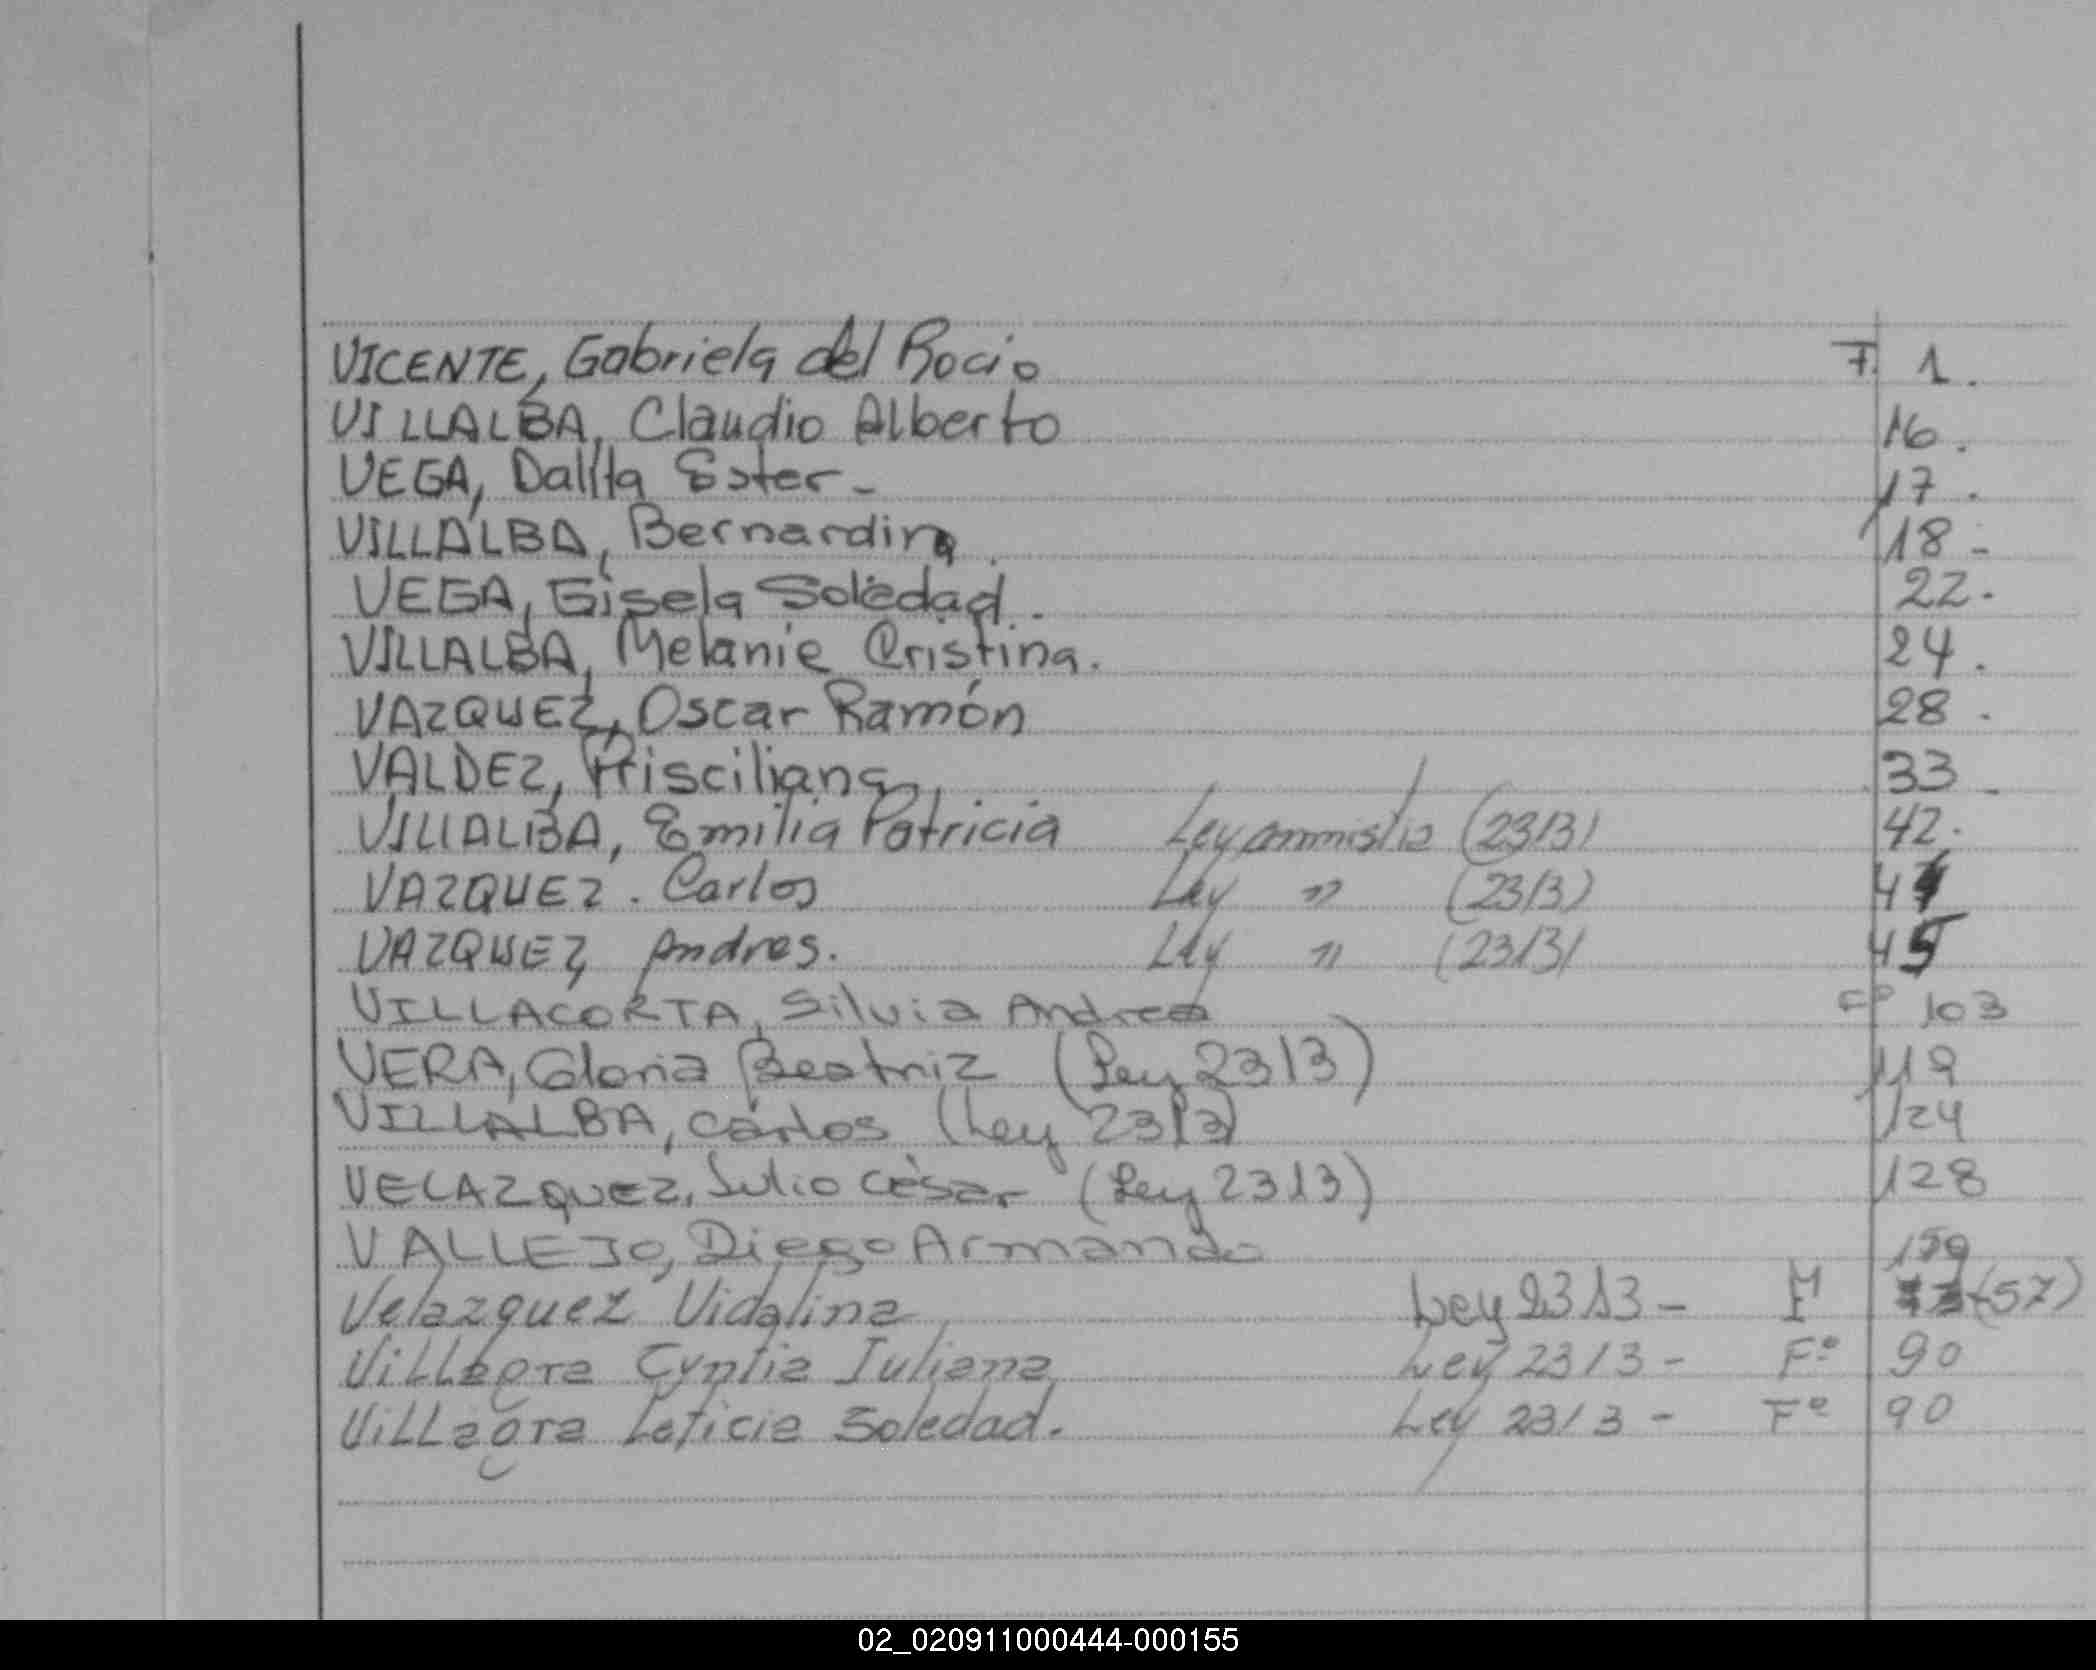 VICENTE, Gabriela del Rocio F. 1.
VILLALBA, Claudio Alberto 16.
VEGA, Dalita Ester - 17.
VILLALBA, Bernardina. 18 -
VEGA, Gisela Soledad. 22.
VILLALBA, Melanie Cristina. 24.
VAZQUEZ, Oscar Ramón 28.
VALDEZ, Prisciliana 33
VILLALBA, Emilia Patricia Ley ammistia (2313) 42.
VAZQUEZ. Carlos Ley " (2313)
VAZQUEZ, Andres. Ley " (2313) 45
VILLACORTA, Silvia Andrea Fº 103
VERA, Gloria Beatriz (Ley 2313) 119
VILLALBA, Carlos (Ley 2313) 124
VELAZQUEZ, Julio César (Ley 2313) 128
VALLEJO, Diego Armando 159
Velazquez Vidalina Ley 2313 - F (57)
Villagra Cyntia Juliana Ley 2313 - Fº 90
Villagra Leticia Soledad. Ley 2313 - Fº 90
02_020911000444-000155